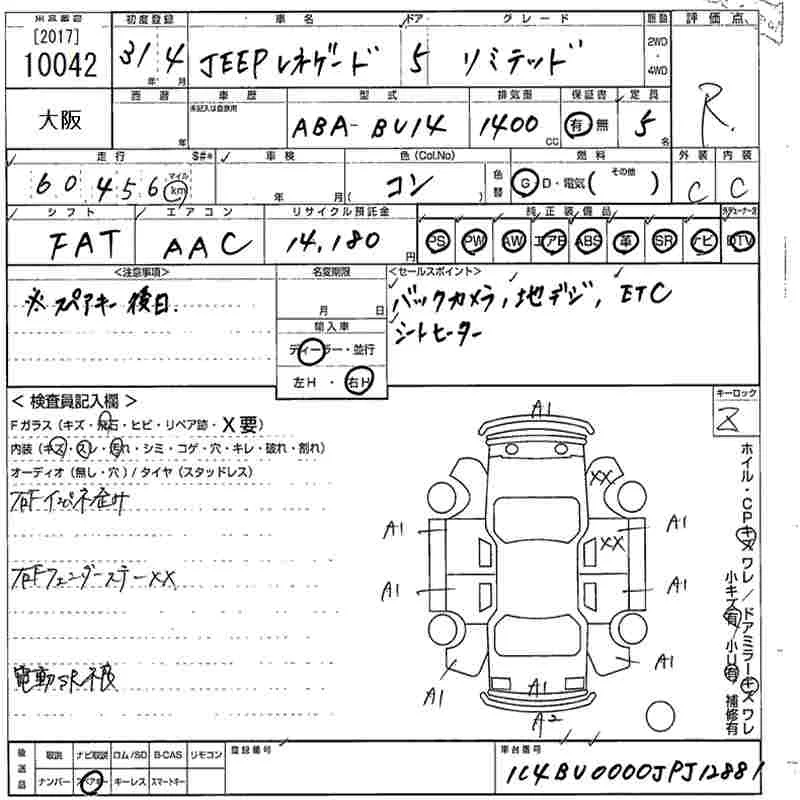 [2017]
10042
初度登録 車名 ドア グレード 駆動 評価点
31年 4月 JEEPレネゲード 5 リミテッド 2WD・4WD R
大阪
西暦 車歴 型式 排気量 保証書 定員
年 未記入は自家用 ABA-BU14 1400cc 有 無 5名
走行 S#* 車検 色(Col.No) 燃料 外装 内装
60,456 マイル km 年 月 コン 色替 G D・電気( その他 ) C C
シフト エアコン リサイクル預託金 純正装備品
FAT AAC 14,180円 PS PW AW エアB ABS 革 SR ナビ DTV
<注意事項> 名変期限 <セールスポイント>
※スペアキー後日. 月 日 バックカメラ,地デジ,ETC
輸入車 シートヒーター
ディーラー・並行
左H・右H
<検査員記入欄> キーロック
Fガラス(キズ・飛石・ヒビ・リペア跡・X要)
内装(キズ・スレ・汚れ・シミ・コゲ・穴・キレ・破れ・割れ)
オーディオ(無し・穴)/タイヤ(スタッドレス)
右Fインパネ歪サ
右FフェンダーステーXX
電動SR
A1
XX
A1 A1
XX
A1 A1
A1 A1 A1
A2
ホイル・CPキズワレ/ドアミラーキズワレ
小キズ有/小U有 補修有
後送品 取説 ナビ取説 ロム/SD B-CAS リモコン 登録番号 車台番号
ナンバー スペアキー キーレス スマートキー 1C4BU0000JPJ12881